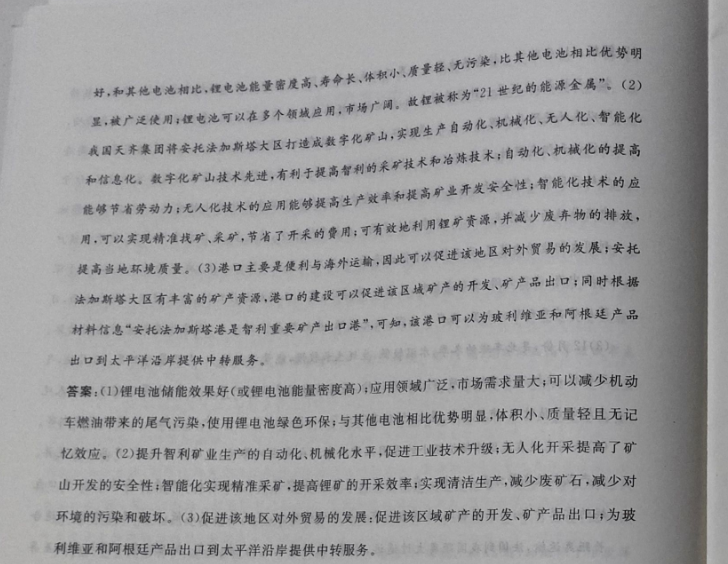 好,和其他电池相比,锂电池能量密度高、寿命长、体积小、质量轻、无污染,比其他电池相比优势明
显,被广泛使用;锂电池可以在多个领域应用,市场广阔。故锂被称为“21世纪的能源金属”。(2)
我国天齐集团将安托法加斯塔大区打造成数字化矿山,实现生产自动化、机械化、无人化、智能化
和信息化。数字化矿山技术先进,有利于提高智利的采矿技术和冶炼技术;自动化、机械化的提高
能够节省劳动力;无人化技术的应用能够提高生产效率和提高矿业开发安全性;智能化技术的应
用,可以实现精准找矿、采矿,节省了开采的费用;可有效地利用锂矿资源,并减少废弃物的排放,
提高当地环境质量。(3)港口主要是便利与海外运输,因此可以促进该地区对外贸易的发展;安托
法加斯塔大区有丰富的矿产资源,港口的建设可以促进该区域矿产的开发、矿产品出口;同时根据
材料信息“安托法加斯塔港是智利重要矿产出口港”,可知,该港口可以为玻利维亚和阿根廷产品
出口到太平洋沿岸提供中转服务。
答案:(1)锂电池储能效果好(或锂电池能量密度高);应用领域广泛,市场需求量大;可以减少机动
车燃油带来的尾气污染,使用锂电池绿色环保;与其他电池相比优势明显,体积小、质量轻且无记
忆效应。(2)提升智利矿业生产的自动化、机械化水平,促进工业技术升级;无人化开采提高了矿
山开发的安全性;智能化实现精准采矿,提高锂矿的开采效率;实现清洁生产,减少废矿石,减少对
环境的污染和破坏。(3)促进该地区对外贸易的发展;促进该区域矿产的开发、矿产品出口;为玻
利维亚和阿根廷产品出口到太平洋沿岸提供中转服务。